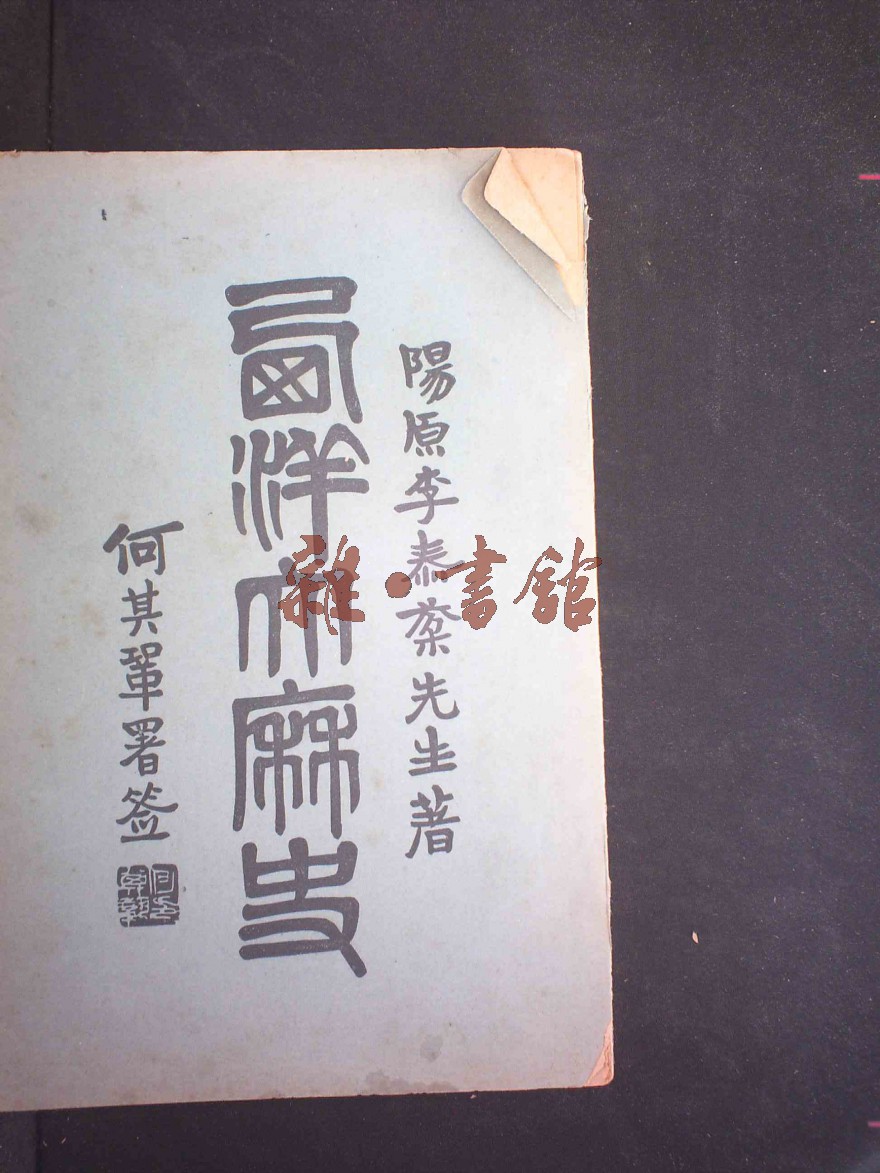 陽原李泰棻先生著
西洋大歷史
何其鞏署签
雜·書館